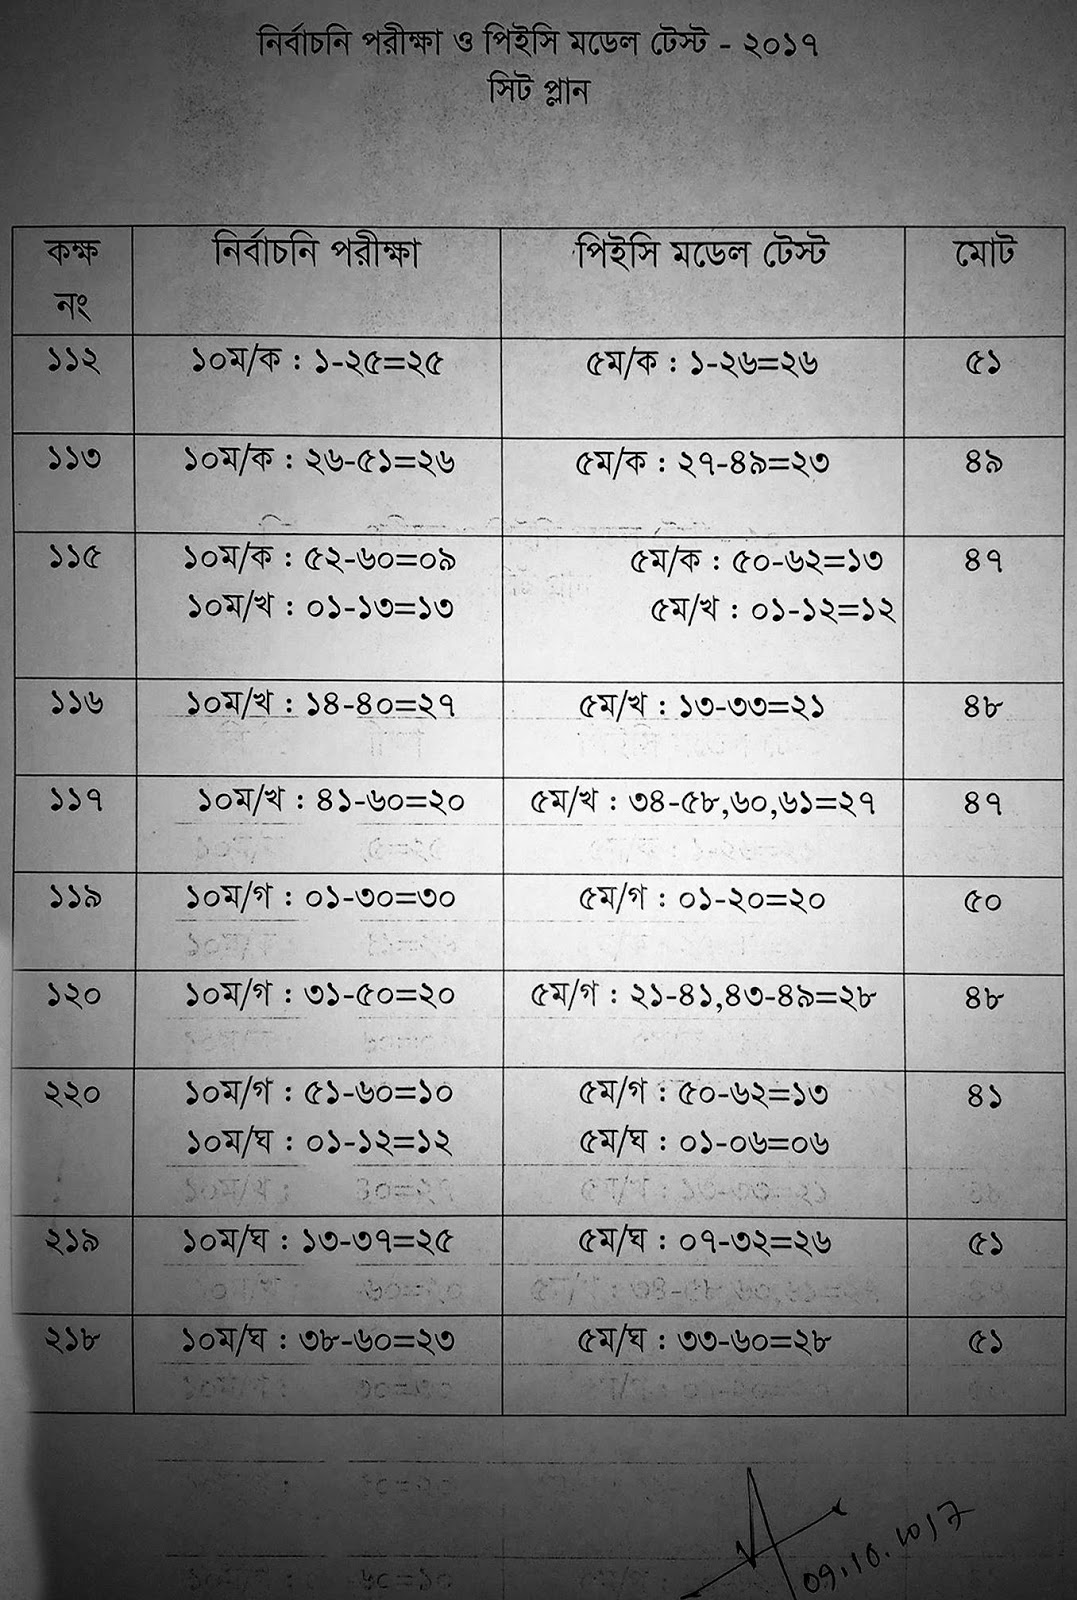 নির্বাচনি পরীক্ষা ও পিইসি মডেল টেস্ট - ২০১৭
সিট প্লান
কক্ষ নং নির্বাচনি পরীক্ষা পিইসি মডেল টেস্ট মোট
১১২ ১০ম/ক : ১-২৫=২৫ ৫ম/ক : ১-২৬=২৬ ৫১
১১৩ ১০ম/ক : ২৬-৫১=২৬ ৫ম/ক : ২৭-৪৯=২৩ ৪৯
১১৫ ১০ম/ক : ৫২-৬০=০৯ ৫ম/ক : ৫০-৬২=১৩ ৪৭
১০ম/খ : ০১-১৩=১৩ ৫ম/খ : ০১-১২=১২
১১৬ ১০ম/খ : ১৪-৪০=২৭ ৫ম/খ : ১৩-৩৩=২১ ৪৮
১১৭ ১০ম/খ : ৪১-৬০=২০ ৫ম/খ : ৩৪-৫৮,৬০,৬১=২৭ ৪৭
১১৯ ১০ম/গ : ০১-৩০=৩০ ৫ম/গ : ০১-২০=২০ ৫০
১২০ ১০ম/গ : ৩১-৫০=২০ ৫ম/গ : ২১-৪১,৪৩-৪৯=২৮ ৪৮
২২০ ১০ম/গ : ৫১-৬০=১০ ৫ম/গ : ৫০-৬২=১৩ ৪১
১০ম/ঘ : ০১-১২=১২ ৫ম/ঘ : ০১-০৬=০৬
২১৯ ১০ম/ঘ : ১৩-৩৭=২৫ ৫ম/ঘ : ০৭-৩২=২৬ ৫১
২১৮ ১০ম/ঘ : ৩৮-৬০=২৩ ৫ম/ঘ : ৩৩-৬০=২৮ ৫১